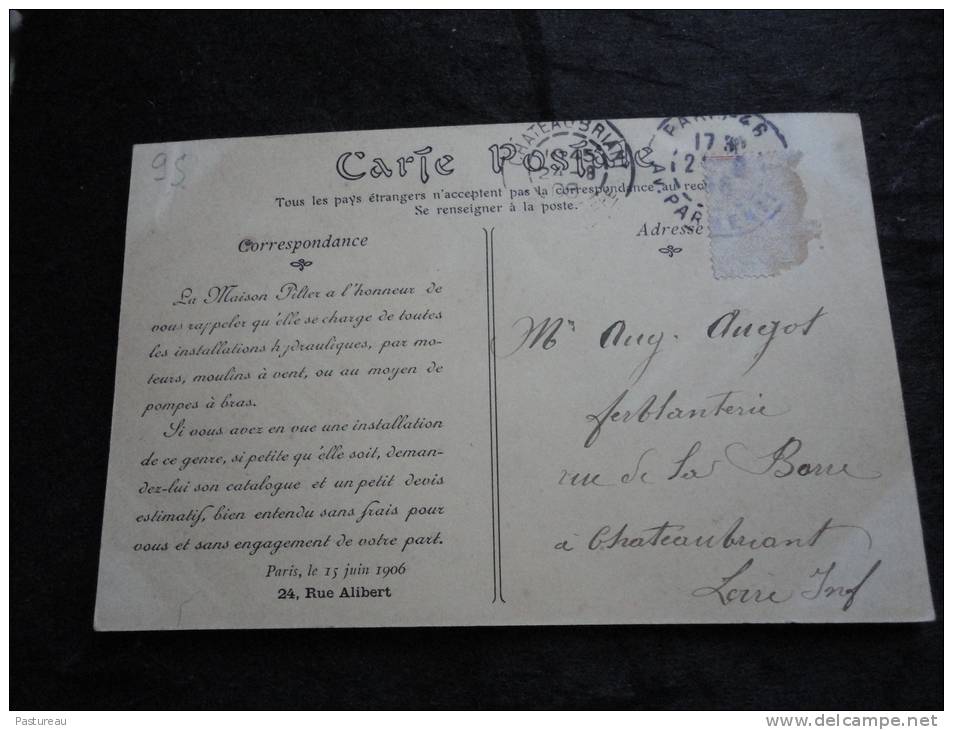 95
Carte Postale
CHATEAUBRIANT
PARIS 46
17 30
AV. PARI
Tous les pays étrangers n'acceptent pas la correspondance au rec
Se renseigner à la poste.
Correspondance
Adresse
La Maison Pilter a l'honneur de
vous rappeler qu'elle se charge de toutes
les installations hydrauliques, par mo-
teurs, moulins à vent, ou au moyen de
pompes à bras.
Si vous avez en vue une installation
de ce genre, si petite qu'elle soit, deman-
dez-lui son catalogue et un petit devis
estimatif, bien entendu sans frais pour
vous et sans engagement de votre part.
Paris, le 15 juin 1906
24, Rue Alibert
Mr Aug. Augot
ferblanterie
rue de La Barre
à Chateaubriant
Loire Inf
Pastureau
www.delcampe.net